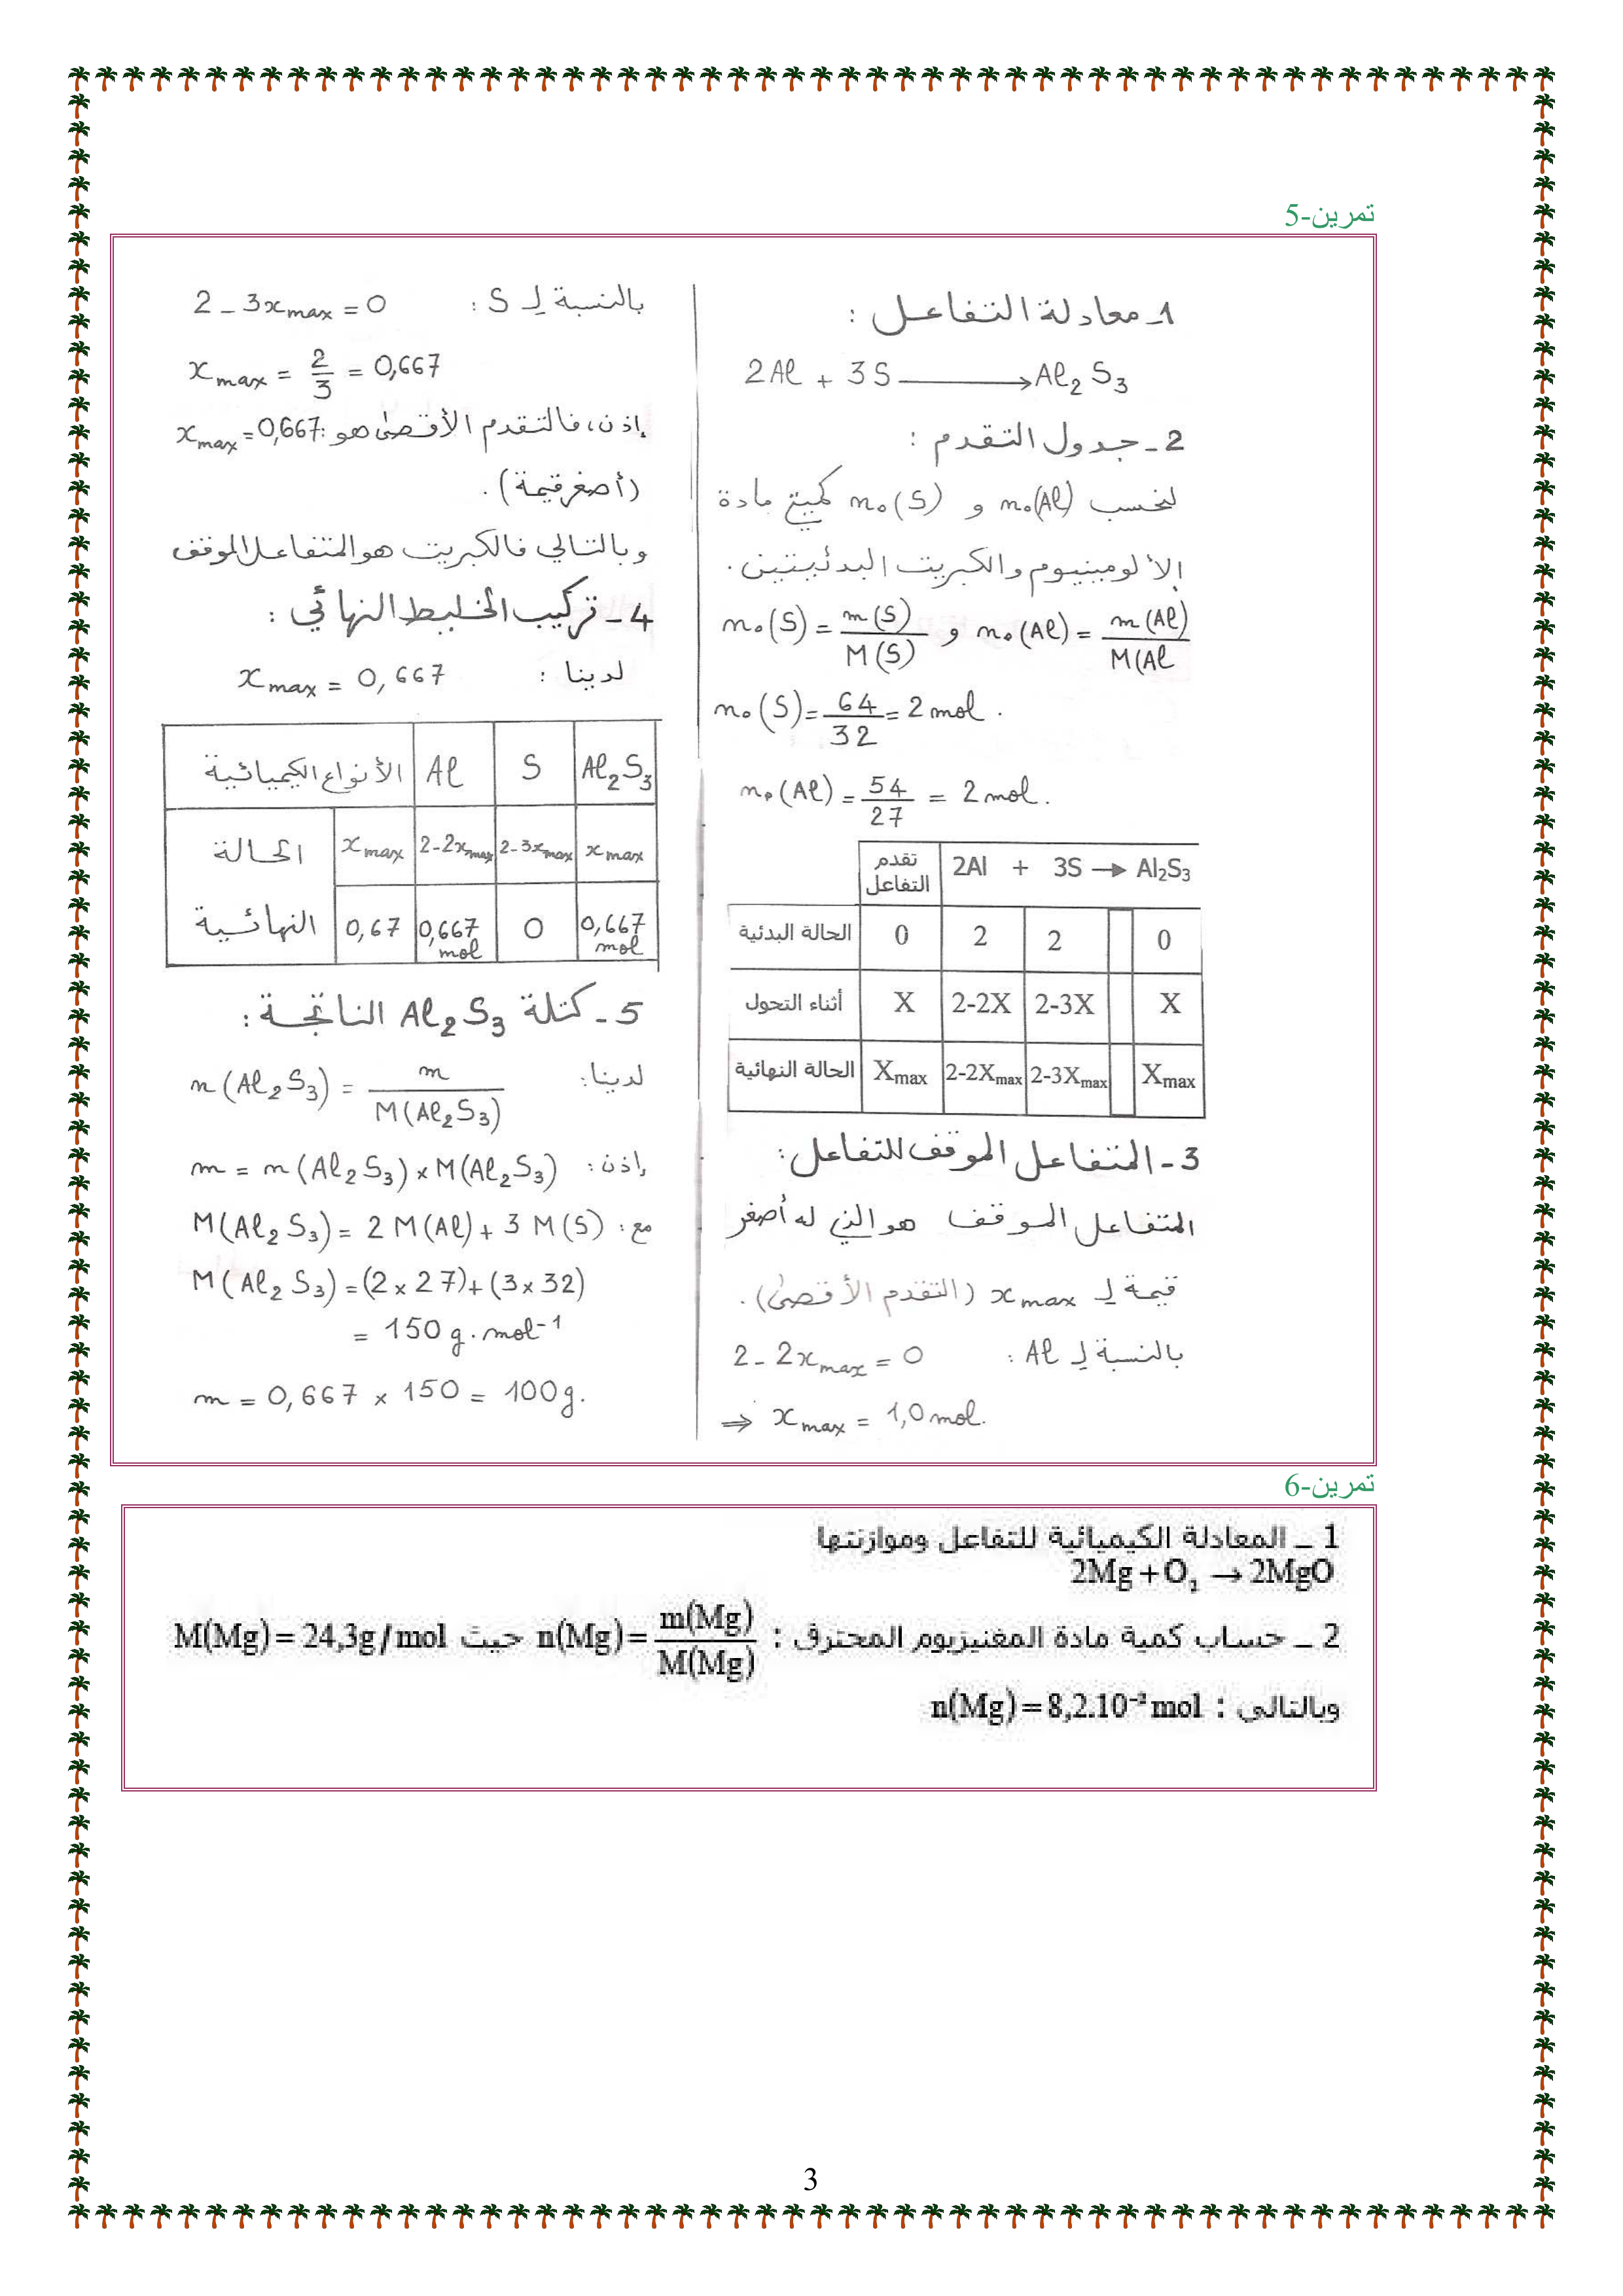 تمرين-5
1_ معادلة التفاعل :
2Al + 3S → Al₂S₃
2_ جدول التقدم :
لنحسب n₀(Al) و n₀(S) كميتي مادة
الألومينيوم والكبريت البدئيتين.
n₀(Al) = m(Al)/M(Al و n₀(S) = m(S)/M(S)
n₀(S) = 64/32 = 2 mol .
n₀(Al) = 54/27 = 2 mol.
تقدم التفاعل 2Al + 3S → Al₂S₃
الحالة البدئية 0 2 2 0
أثناء التحول X 2-2X 2-3X X
الحالة النهائية Xmax 2-2Xmax 2-3Xmax Xmax
3_ المتفاعل الموقف للتفاعل:
المتفاعل الموقف هو الذي له أصغر
قيمة لـ xmax (التقدم الأقصى).
بالنسبة لـ Al : 2 - 2xmax = 0
⇒ xmax = 1,0 mol.
بالنسبة لـ S : 2 - 3xmax = 0
xmax = 2/3 = 0,667
إذن، فالتقدم الأقصى هو: xmax = 0,667
(أصغر قيمة).
وبالتالي فالكبريت هو المتفاعل الموقف
4_ تركيب الخليط النهائي :
لدينا : xmax = 0,667
الأنواع الكيميائية Al S Al₂S₃
الحالة xmax 2-2xmax 2-3xmax xmax
النهائية 0,67 0,667 mol 0 0,667 mol
5_ كتلة Al₂S₃ الناتجة :
لدينا: n(Al₂S₃) = m/M(Al₂S₃)
إذن: m = n(Al₂S₃) × M(Al₂S₃)
مع: M(Al₂S₃) = 2 M(Al) + 3 M(S)
M(Al₂S₃) = (2 × 27) + (3 × 32)
= 150 g.mol⁻¹
m = 0,667 × 150 = 100g.
تمرين-6
1 _ المعادلة الكيميائية للتفاعل وموازنتها
2Mg + O₂ → 2MgO
2 _ حساب كمية مادة المغنيزيوم المحترق : n(Mg) = m(Mg)/M(Mg) حيث M(Mg) = 24,3g/mol
وبالتالي : n(Mg) = 8,2.10⁻² mol
3